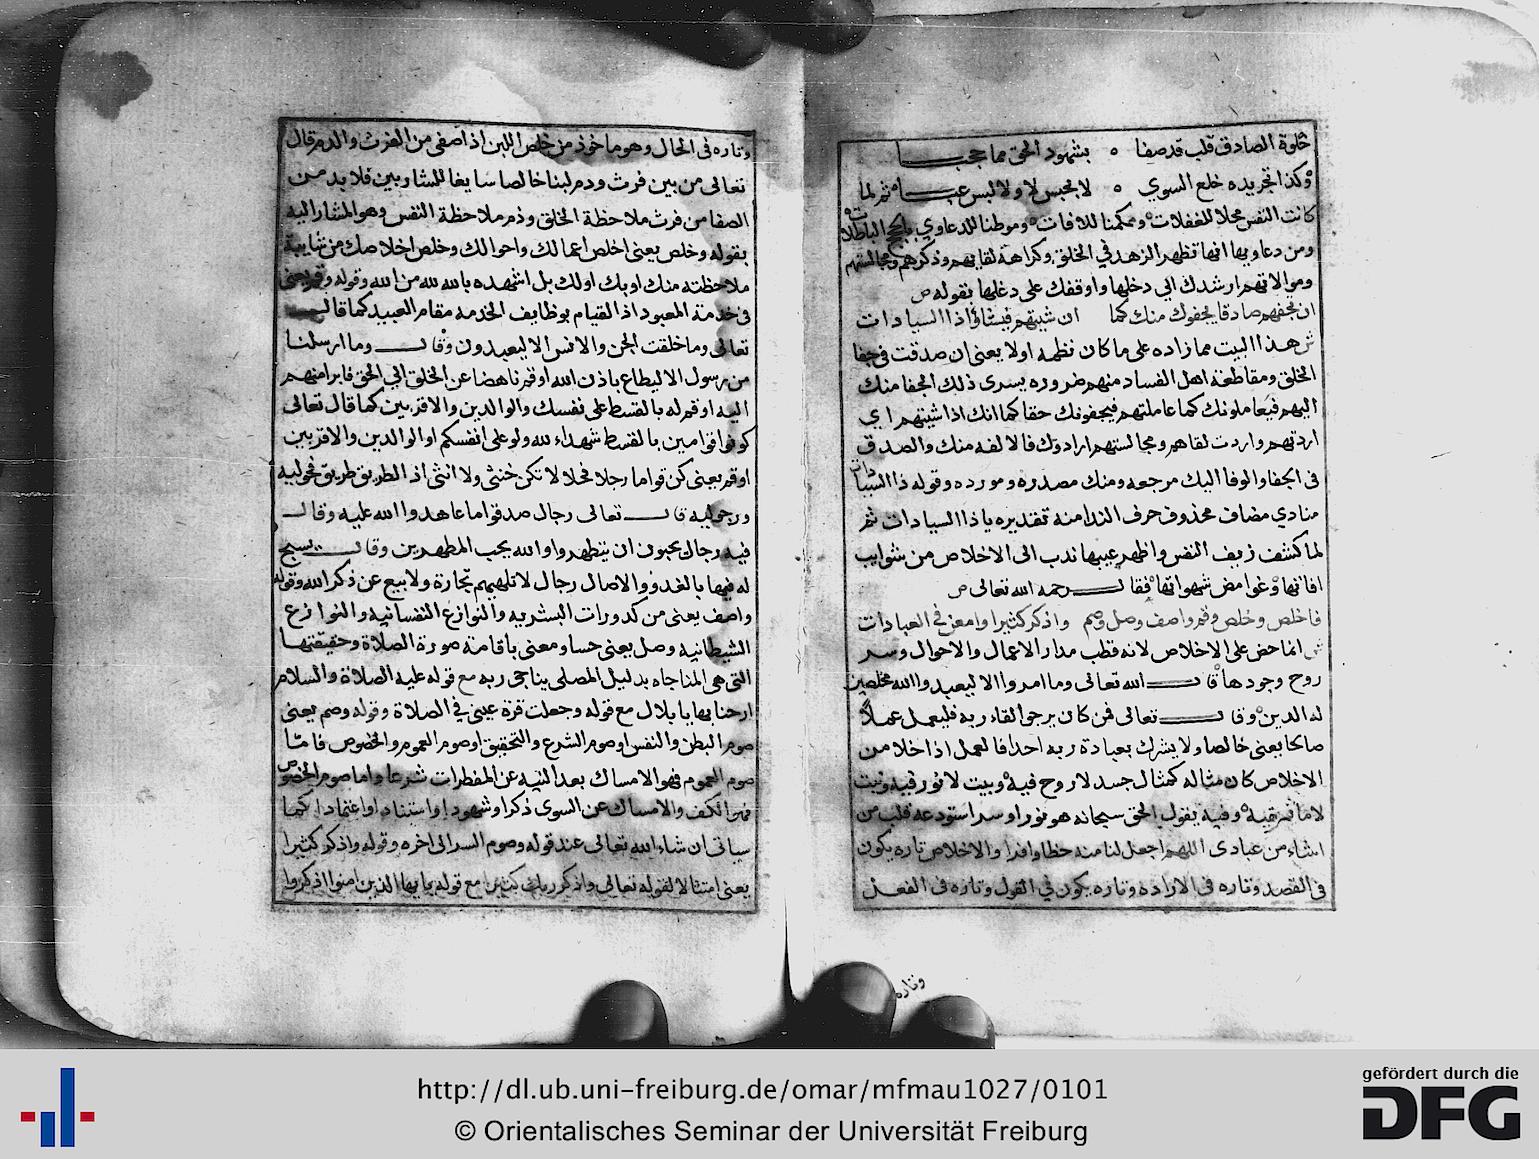 خلوة الصادق قلب قد صفا ه بشهود الحق مما حجبا
وكذا تجريده خلع السوي ه لا بحبس لا ولا لبس عبا ثم لما
كانت النفس محلا للغفلات وممكنا للافات وموطنا للدعاوي
ومن دعاويها انها تظهر الزهد في الخلق وكراهة لقايهم وذكرهم ومجالستهم
وموالاتهم ارشدك الي دخلها واوقفك على دغلها بقوله ص
ان تجفهم صادقا يجفوك منك كما ان شيتهم فيشاؤا ذا السيادات
ش هذا البيت مما زاده على ما كان نظمه اولا يعني ان صدقت في جفا
الخلق ومقاطعة اهل الفساد منهم ضروره يسرى ذلك الجفا منك
اليهم فيعاملونك كما عاملتهم فيجفونك حقا كما انك اذا شيتهم اي
اردتهم واردت لقاهم ومجالستهم ارادوك فالالفه منك والصدق
في الجفا والوفا اليك مرجعه ومنك مصدره ومورده وقوله ذا السيادات
منادي مضاف محذوف حرف الندا منه تقديره يا ذا السيادات ثم
لما كشف زيف النفس واظهر عيبها ندب الى الاخلاص من شوايب
افاتها وغوامض شهواتها فقال رحمه الله تعالى ص
فاخلص وخلص وقم واصف وصل وصم واذكر كثيرا وامعن في العبادات
ش انما حض على الاخلاص لانه قطب مدار الاعمال والاحوال وسر
روح وجودها قال الله تعالى وما امروا الا ليعبدوا الله مخلصين
له الدين وقال تعالى فمن كان يرجو القاء ربه فليعمل عملا
صالحا يعني خالصا ولا يشرك بعبادة ربه احدا فالعمل اذا خلا من
الاخلاص كان مثاله كمثال جسد لا روح فيه وبيت لا نور فيه ونبت
لا ما ثم رقيه وفيه يقول الحق سبحانه هو نور او سر استودعه قلب من
اشاء من عبادى اللهم اجعل لنا منه حظا وافرا والاخلاص تاره يكون
في القصد وتاره في الاراده وتاره يكون في القول وتاره في الفعل
وتاره
وتاره في الحال وهو ماخوذ من خلص اللبن اذا صفى من الفرث والدم قال
تعالى من بين فرث ودم لبنا خالصا سايغا للشاربين فلا بد من
الصفا من فرث ملاحظة الخلق ودم ملاحظة النفس وهو المشار اليه
بقوله وخلص يعني اخلص اعمالك واحوالك وخلص اخلاصك من شايبة
ملاحظته منك او بك او لك بل اشهده بالله لله من الله وقوله وقم يعني
في خدمة المعبود اذ القيام بوظايف الخدمه مقام العبيد كما قال
تعالى وما خلقت الجن والانس الا ليعبدون وقال وما ارسلنا
من رسول الا ليطاع باذن الله او قم ناهضا عن الخلق الي الحق فابرا منهم
اليه او قم له بالقسط على نفسك والوالدين والاقربين كما قال تعالى
كونوا قوامين بالقسط شهداء لله ولو على انفسكم او الوالدين والاقربين
او قم يعني كن قواما رجلا فحلا لا تكن خنثى ولا انثى اذ الطريق طريق فحوليه
ورجوليه قال تعالى رجال صدقوا ما عاهدوا الله عليه وقال
فيه رجال يحبون ان يتطهروا والله يحب المطهرين وقال يسبح
له فيها بالغدو والاصال رجال لا تلهيهم تجارة ولا بيع عن ذكر الله وقوله
واصف يعني من كدورات البشريه والنوازع النفسانيه والنوازع
الشيطانيه وصل يعني حسا ومعنى باقامة صورة الصلاة وحقيقتها
التي هي المناجاه بدليل المصلى يناجى ربه مع قوله عليه الصلاة والسلام
ارحنا بها يا بلال مع قوله وجعلت قرة عيني في الصلاة وقوله وصم يعني
صوم البطن والنفس او صوم الشرع والتحقيق او صوم العموم والخصوص فاما
صوم العموم فهو الامساك بعد النيه عن المفطرات شرعا واما صوم الخصوص
فهو الكف والامساك عن السوى ذكرا وشهودا واستنادا واعتمادا كما
سياتى ان شاء الله تعالى عند قوله وصوم السر الى اخره وقوله واذكر كثيرا
يعني امتثالا لقوله تعالى واذكر ربك كثيرا مع قوله يا يها الذين امنوا اذكروا
http://dl.ub.uni-freiburg.de/omar/mfmau1027/0101
© Orientalisches Seminar der Universität Freiburg
gefördert durch die
DFG